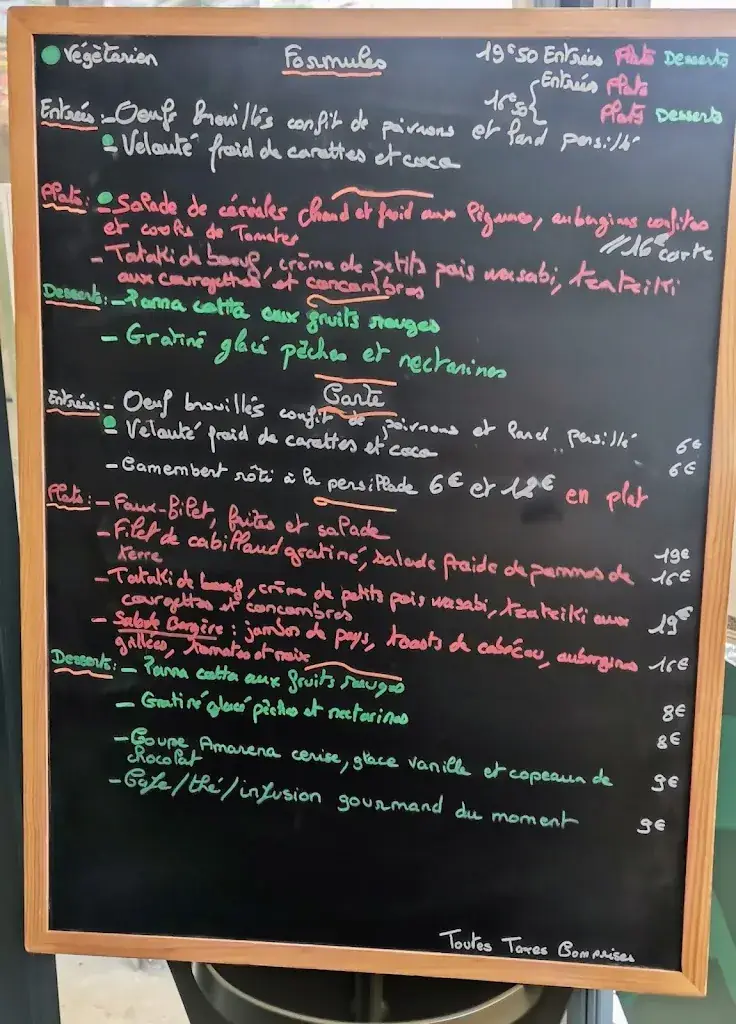 Végètarien
Formules
19€50 Entrées Plats Desserts
16€50 { Entrées Plats
Plats Desserts
Entrées :- Oeufs brouillés confit de poivrons et lard persillé
- Velouté froid de carottes et coco
Plats : - Salade de céréales chaud et froid aux légumes, aubergines confites
et coulis de Tomates
//16€ carte
- Tataki de boeuf, crème de petits pois wasabi, tzatziki
aux courgettes et concombres
Desserts :- Panna cotta aux fruits rouges
- Gratiné glacé pêches et nectarines
Carte
Entrées :- Oeuf brouillés confit de poivrons et lard persillé 6€
- Velouté froid de carottes et coco 6€
- Camembert rôti à la persillade 6€ et 12€ en plat
Plats :- Faux-filet, frites et salade 19€
- Filet de cabillaud gratiné, salade froide de pommes de 16€
terre
- Tataki de boeuf, crème de petits pois wasabi, tzatziki aux 19€
courgettes et concombres
- Salade Bergère : jambon de pays, toasts de cabécou, aubergines 16€
grillées, tomates et noix
Desserts : - Panna cotta aux fruits rouges 8€
- Gratiné glacé pêches et nectarines 8€
- Coupe Amarena cerise, glace vanille et copeaux de 9€
chocolat
- Café/thé/infusion gourmand du moment 9€
Toutes Taxes Comprises